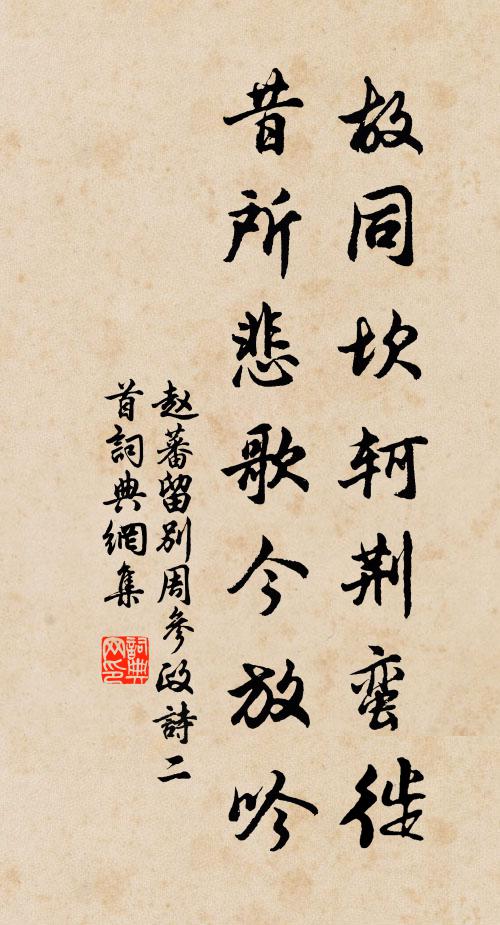 故同坎轲荆蛮徙
昔所悲歌今放吟
赵蕃留别周参政詩二
首詞典網集
詞典网印